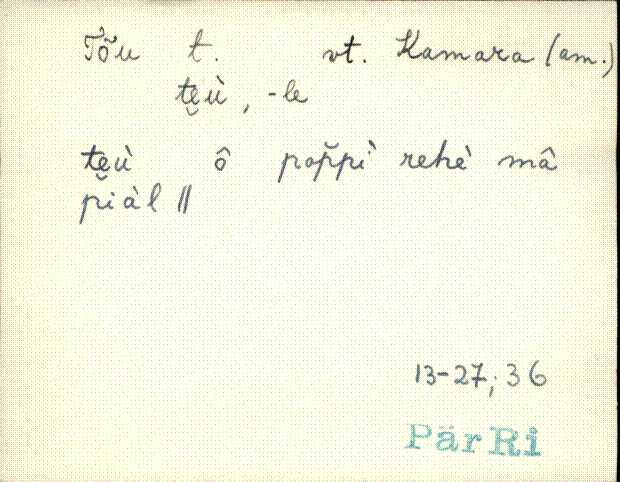 Tõu t. vt. Kamara (am.)
te̮ù, -le
te̮ù ô popp̆ì rehè mâ
p̆iàl ||
13-27; 36
PärRi